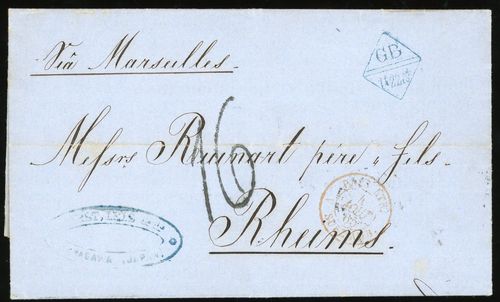 Viâ Marseilles
GB
Messrs Ruinart père & fils
16
Rheims.
JAPAN.